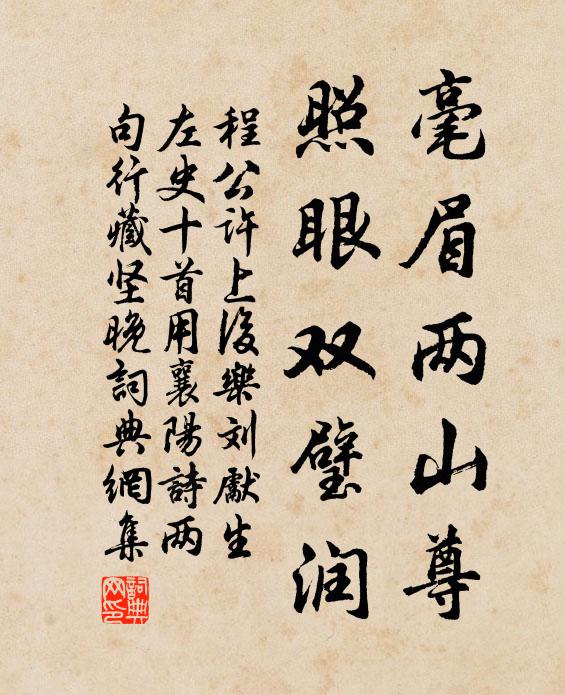 毫眉两山尊
照眼双璧润
程公许上后乐刘献生
左史十首用襄陽詩两
句行藏坚晚詞典網集
詞典网印